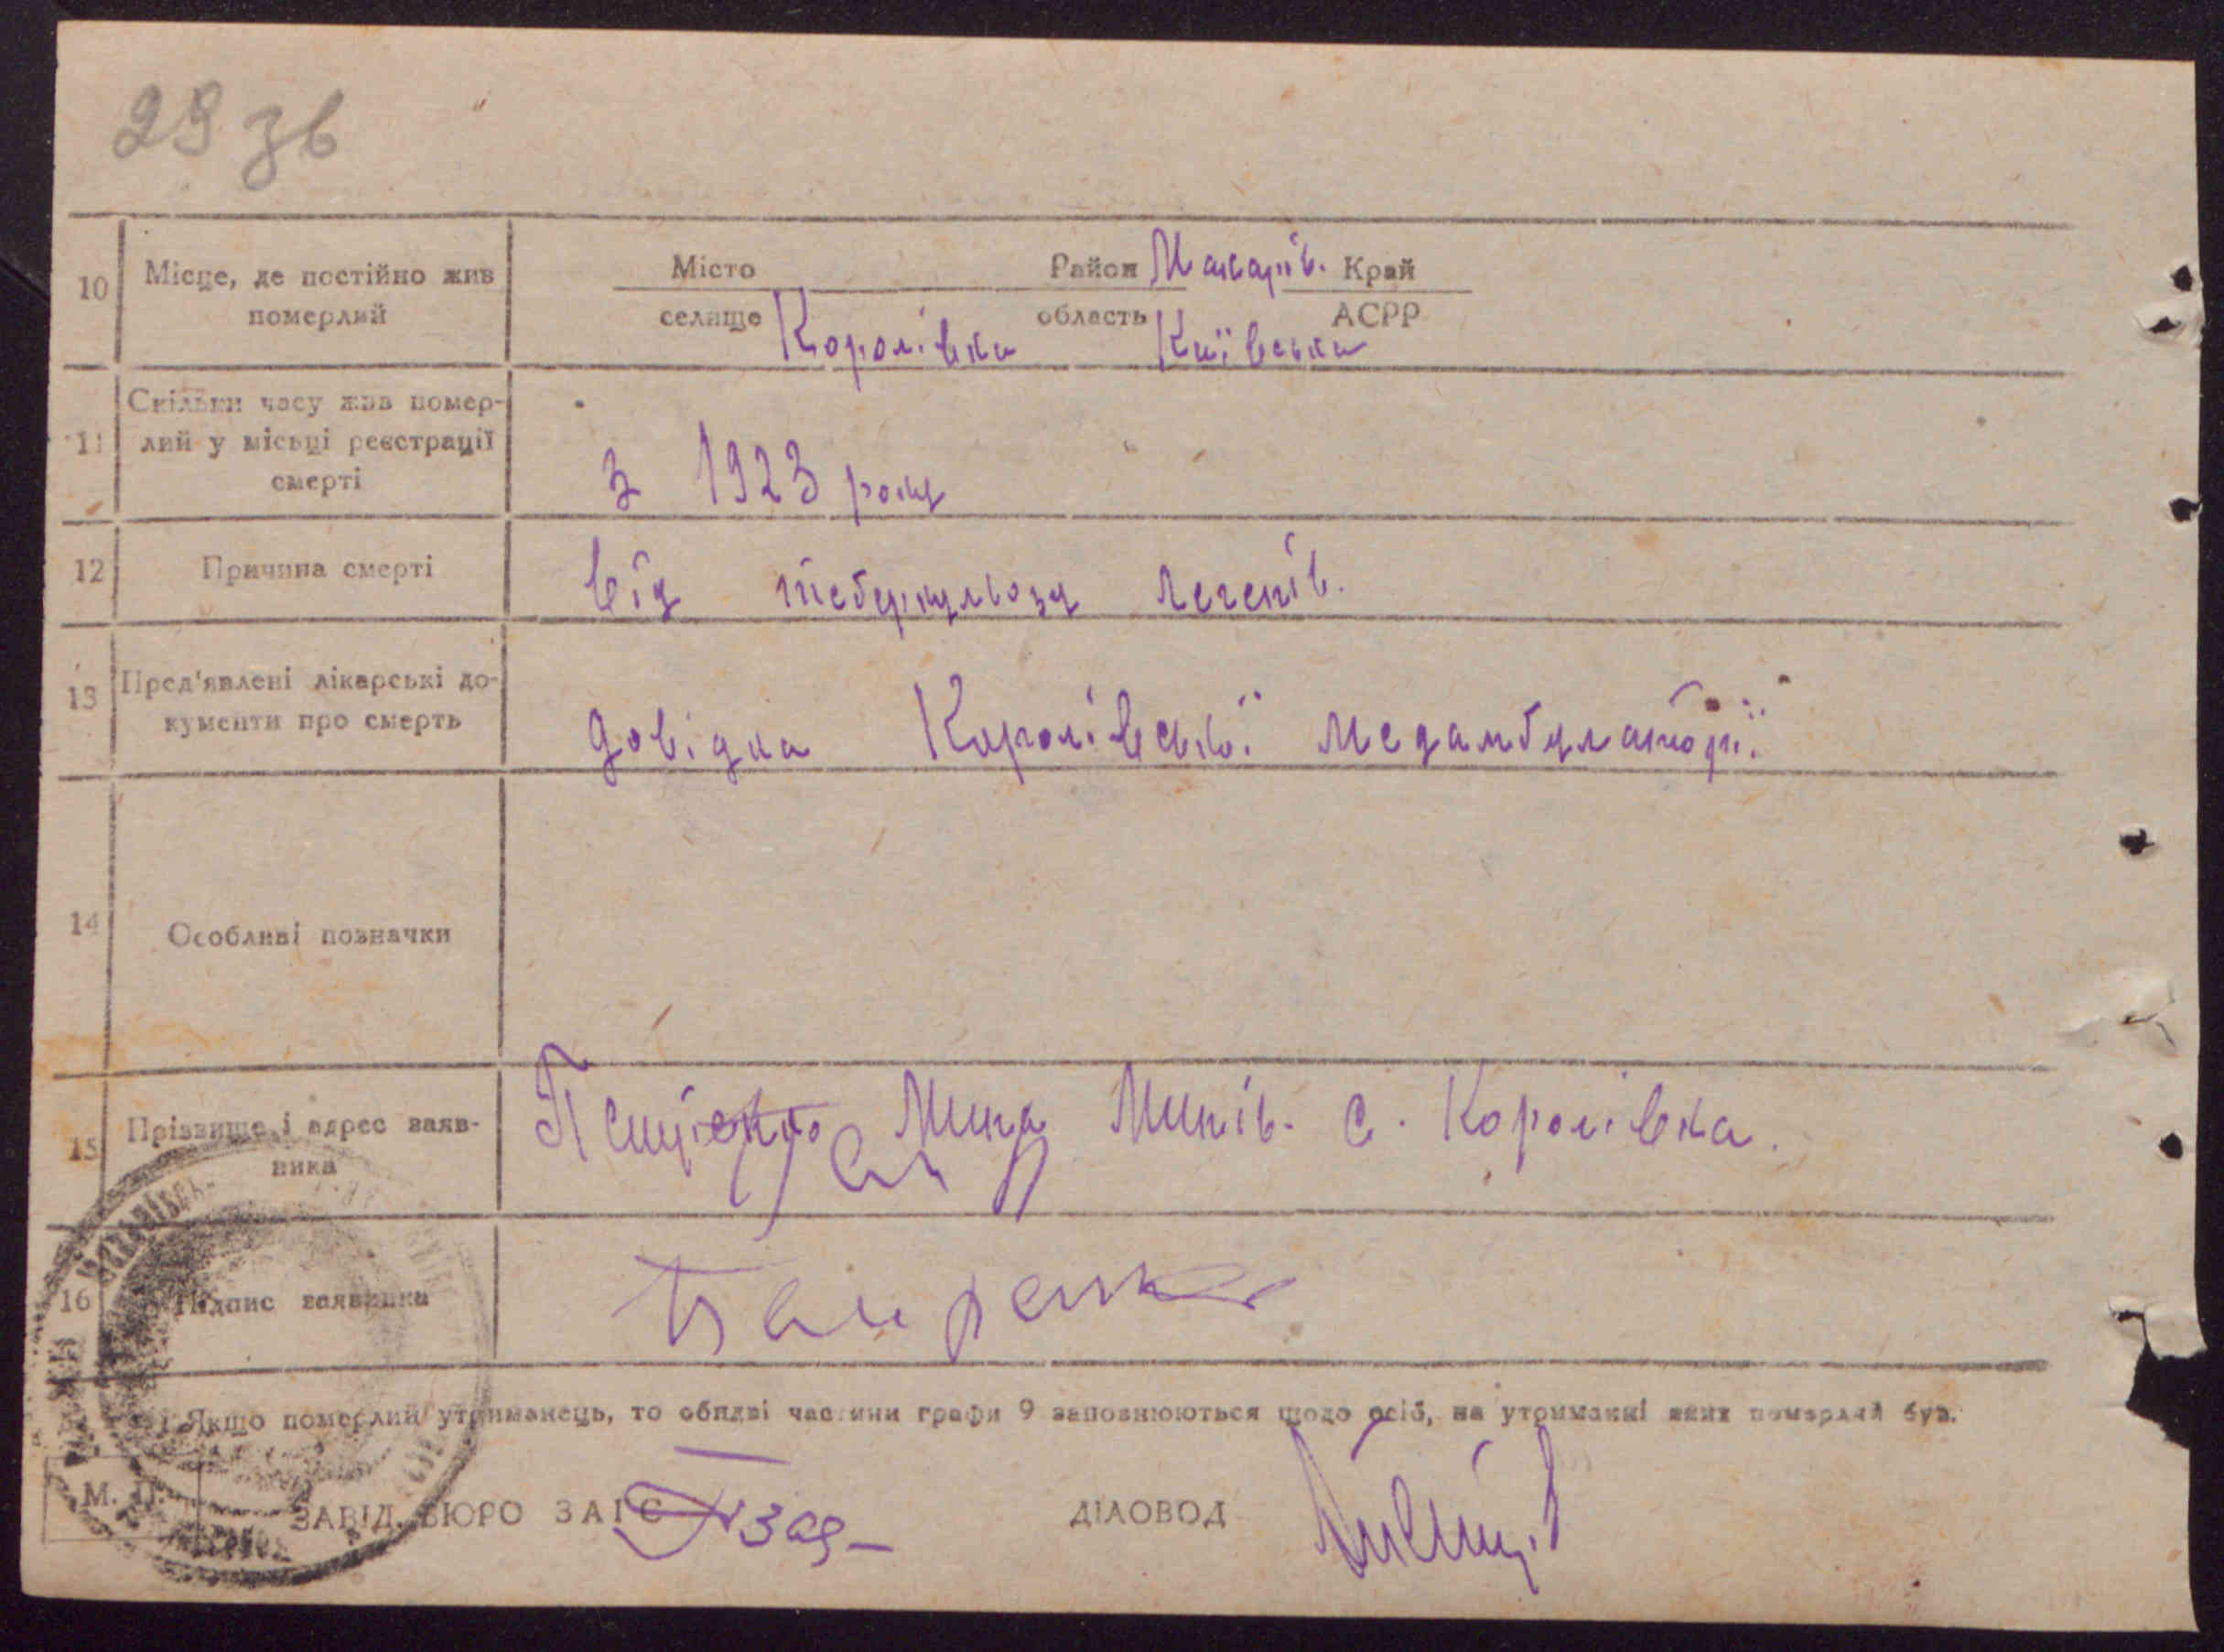 29 зв
10 Місце, де постійно жив Місто Район Макарів. Край
померлий селище Королівка область Київська АСРР
Скільки часу жив помер-
11 лий у місьці реєстрації
смерті з 1923 року
12 Причина смерті від теберкульозу легенів.
13 Пред'явлені лікарські до-
кументи про смерть довідка Королівської медамбулаторії
14 Особливі позначки
15 Прізвище і адрес заяв- Мина Минів. с. Королівка.
ника
16 Підпис заявника
Якщо померлий утриманець, то обидві частини графи 9 заповнюються щодо осіб, на утриманні яких померлий був.
М. П.
ЗАВІД. БЮРО ЗАГС ДІЛОВОД